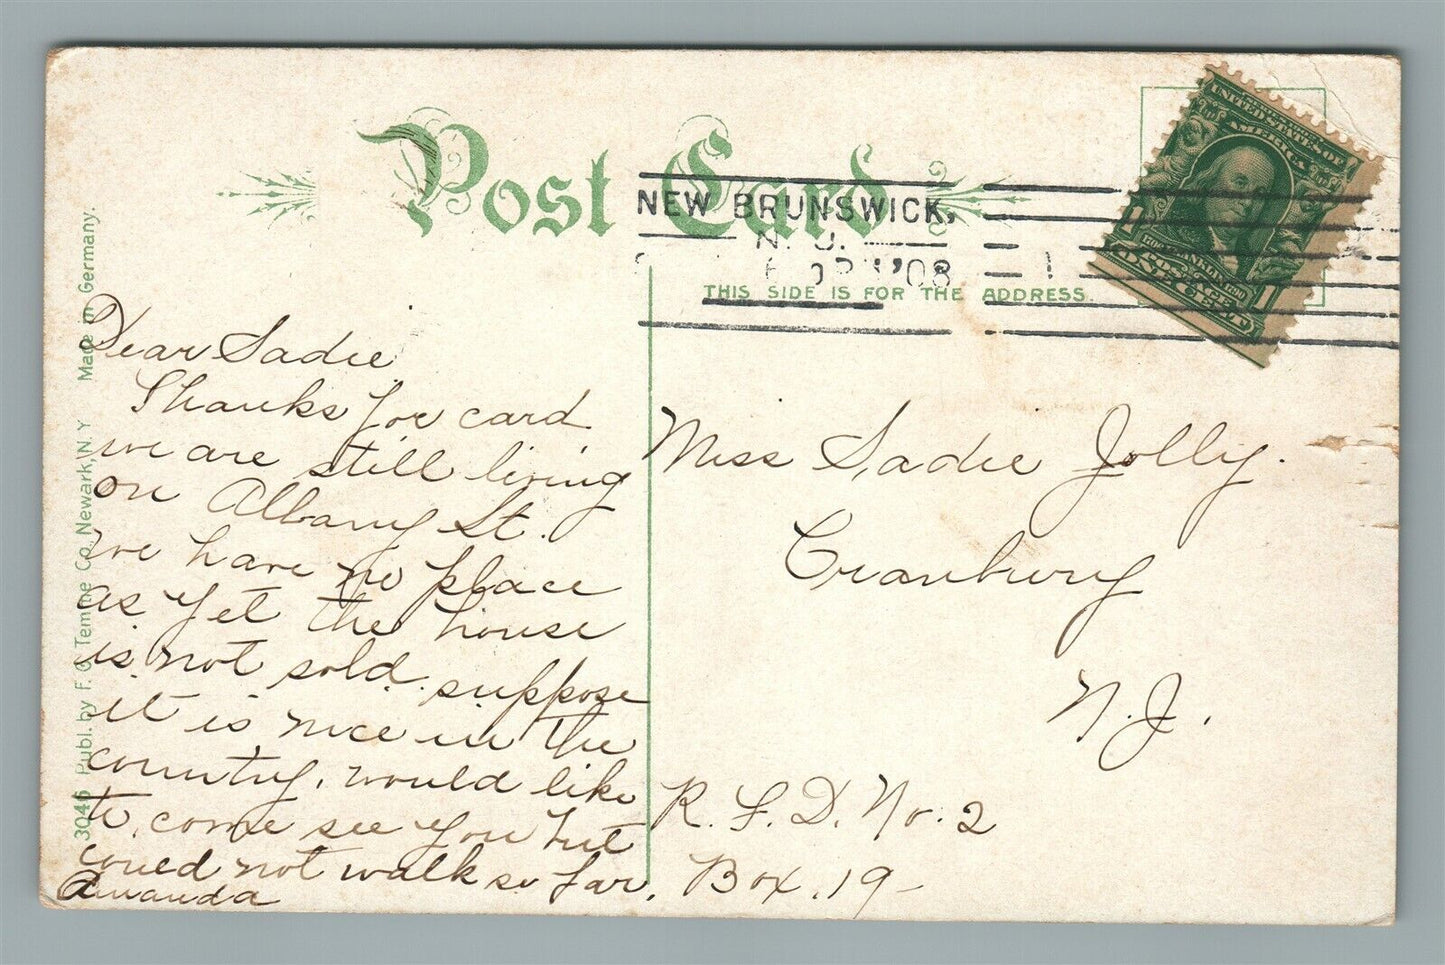 Post Card
NEW BRUNSWICK,
N. J.
'08
THIS SIDE IS FOR THE ADDRESS.
UNITED STATES OF
AMERICA
1 1
POSTAGE
ONE CENT
3046 Publ. by F. C. Temme Co. Newark, N.Y Made in Germany.
Dear Sadie
Thanks for card
we are still living
on Albany St.
we have no place
as yet the house
is not sold. suppose
it is nice in the
country. would like
to come see you but
could not walk so far.
Amanda
Miss Sadie Jolly.
Cranbury
N.J.
R. F. D. No. 2
Box. 19-